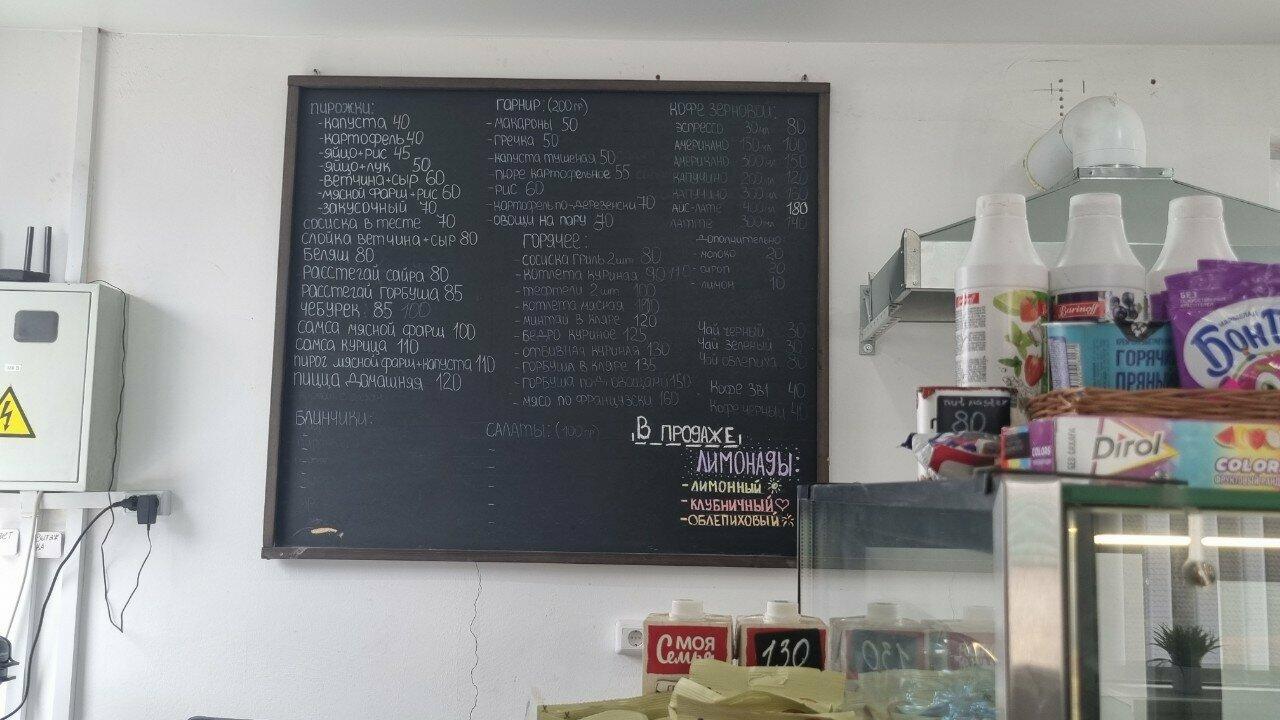 пирожки:
-капуста 40
-картофель 40
-яйцо+рис 45
-яйцо+лук 50
-ветчина+сыр 60
-мясной фарш+рис 60
-закусочный 70
сосиска в тесте 70
слойка ветчина+сыр 80
беляш 80
расстегай сайра 80
расстегай горбуша 85
чебурек 85 100
самса мясной фарш 100
самса курица 110
пирог мясной фарш+капуста 110
пицца домашняя 120
блинчики:
гарнир: (200 гр)
-макароны 50
-гречка 50
-капуста тушеная 50
-пюре картофельное 55
-рис 60
-картофель по-деревенски 70
-овощи на пару
горячее:
-сосиска гриль 2шт 80
-котлета куриная 90 110
-тефтели 2 шт 100
-котлета мясная
-минтай в кляре 120
-бедро куриное 125
-отбивная куриная 130
-горбуша в кляре 135
-горбуша под овощами 150
-мясо по французски 160
салаты: (100 гр)
кофе зерновой:
эспрессо 30мл 80
американо 150мл 100
американо 300мл 150
капучино 200мл 120
капучино 300мл
айс-латте 400мл 180
латте 300мл 140
дополнительно:
-молоко 20
-сироп
-лимон 10
Чай черный 30
Чай зеленый 30
Чай облепиха
Кофе 3в1 40
Кофе черный 40
В продаже
лимонады:
-лимонный
-клубничный
-облепиховый
Barinoff
ГОРЯЧИ
ПРЯНЫ
БЕЗ
БОН
nut master
80
COLORS
БЕЗ САХАРА
Dirol
COLOR
МОЯ
Семья
130